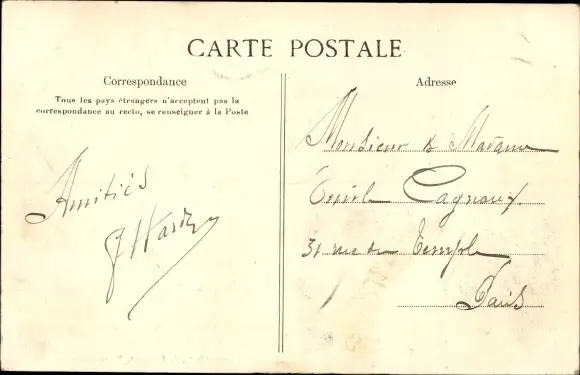 CARTE POSTALE
Correspondance
Tous les pays étrangers n'acceptent pas la
correspondance au recto, se renseigner à la Poste
Amitiés
J Hardy
Adresse
Monsieur & Madame
Emile Cagnaux
31 rue du Temple
Paris